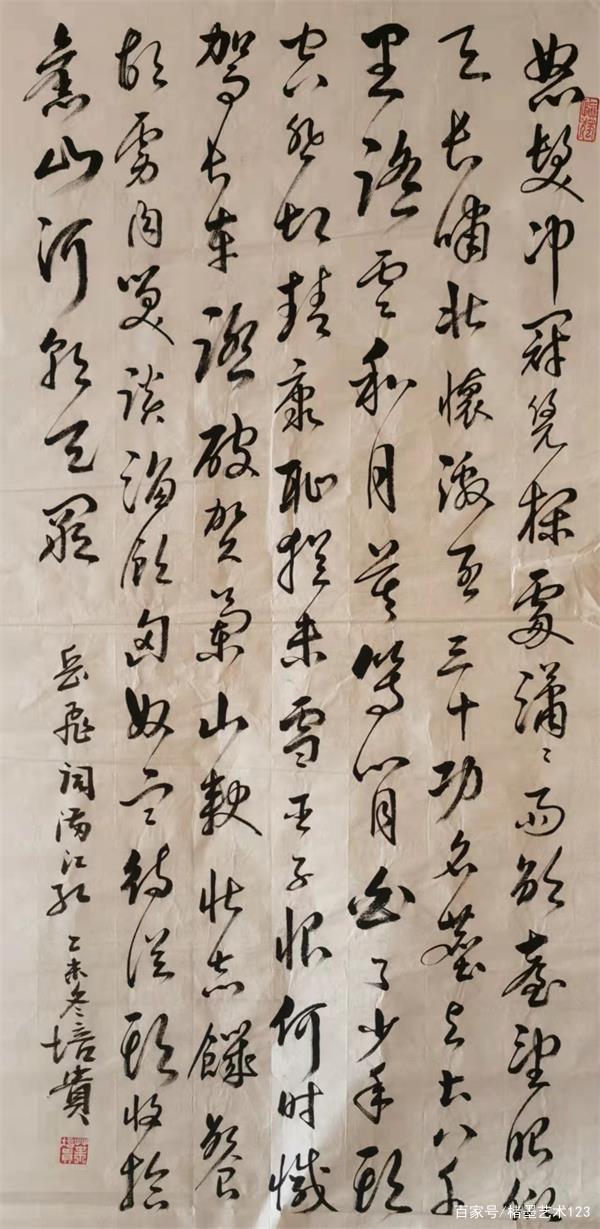 怒髮冲冠凭栏處瀟々雨歇臺望眼仰
天长嘯壮懷激烈三十功名塵与土八千
里路雲和月莫等闲白了少年頭
空悲切靖康耻猶未雪臣子恨何时滅
驾长车踏破贺蘭山缺壮志饑餐
胡虏肉笑谈渴飲匈奴血待從頭收拾
舊山河朝天闕
岳飛词满江红
乙未冬培貴
百家号/楮墨艺术123